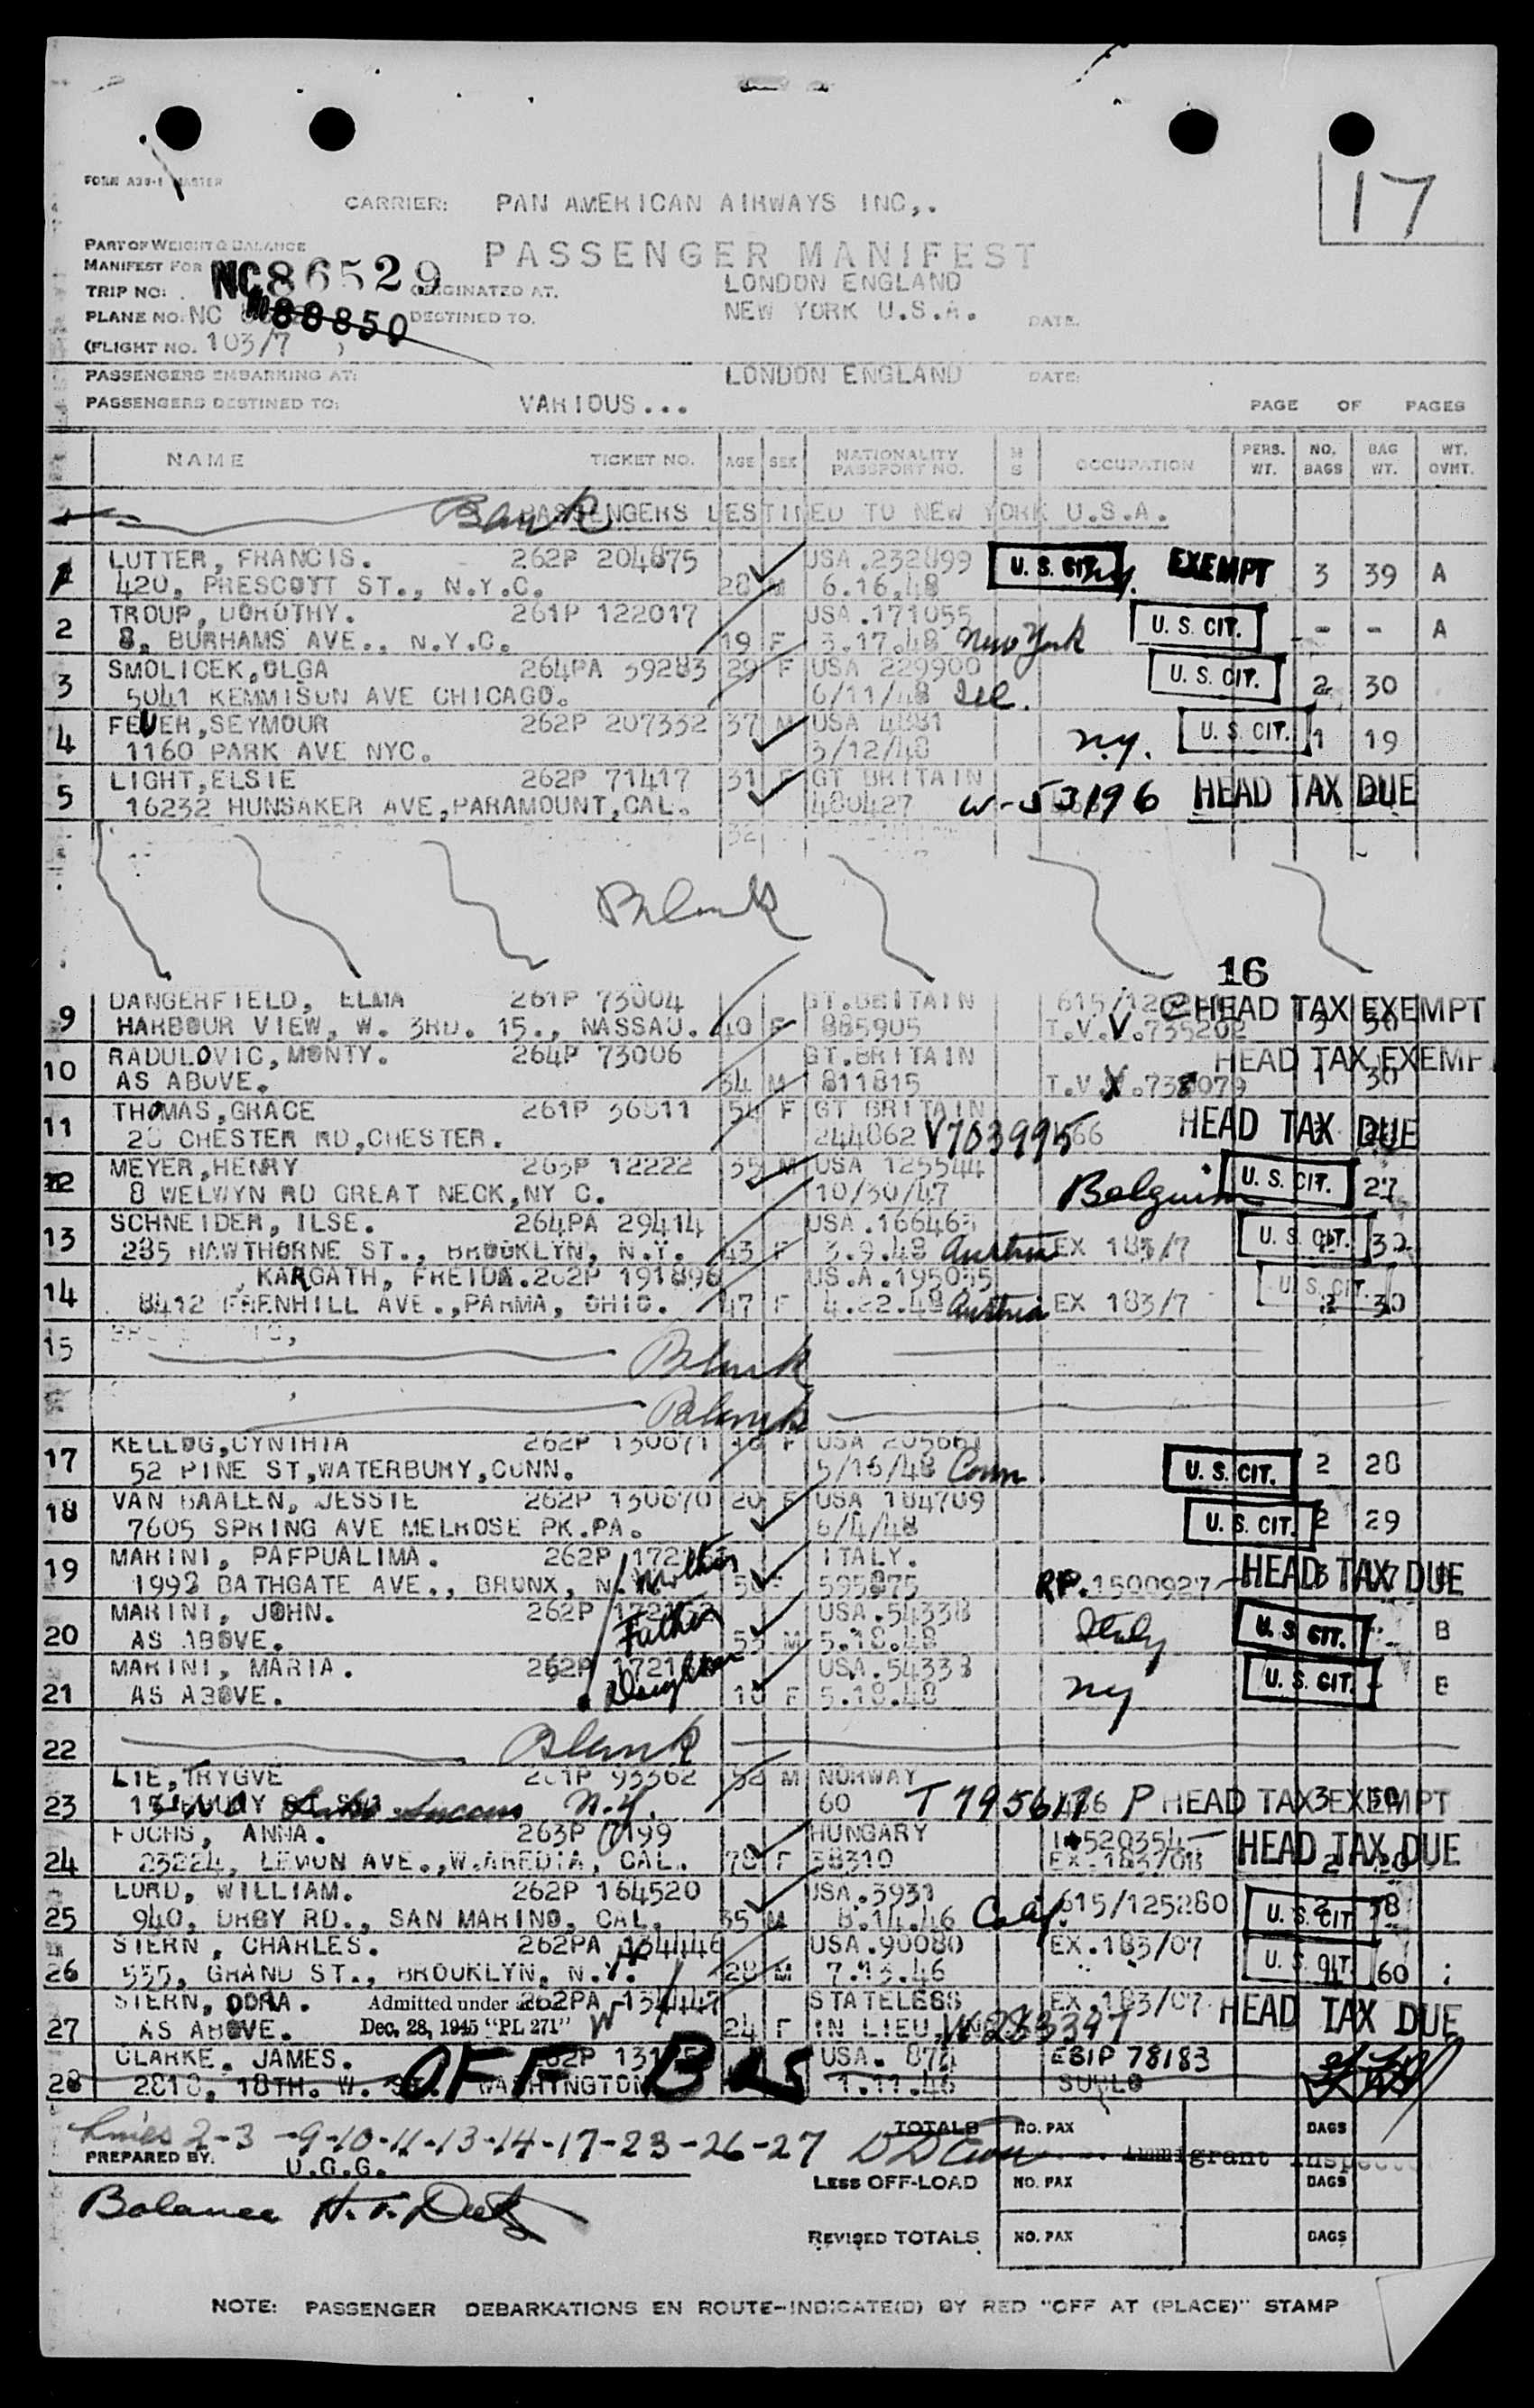 17
FORM A39-1 MASTER
CARRIER: PAN AMERICAN AIRWAYS INC,.
PART OF WEIGHT & BALANCE
PASSENGER MANIFEST
MANIFEST FOR
NC86529
TRIP NO: ORIGINATED AT. LONDON ENGLAND
PLANE NO. NC 88850 DESTINED TO. NEW YORK U.S.A. DATE.
(FLIGHT NO. 103/7 )
PASSENGERS EMBARKING AT: LONDON ENGLAND DATE:
PASSENGERS DESTINED TO: VARIOUS... PAGE OF PAGES
NAME TICKET NO. AGE SEX NATIONALITY PASSPORT NO. M S OCCUPATION PERS. WT. NO. BAGS BAG WT. WT. OVHT.
PASSENGERS DESTINED TO NEW YORK U.S.A.
1 LUTTER, FRANCIS. 262P 204875 USA.232899 U. S. CIT. N.Y. EXEMPT 3 39 A
420, PRESCOTT ST., N.Y.C. 28 M 6.16.48
2 TROUP, DOROTHY. 261P 122017 USA.171055 U. S. CIT. - - A
8, BURHAMS AVE., N.Y.C. 19 F 3.17.48 New York
3 SMOLICEK,OLGA 264PA 39283 29 F USA 229900 U. S. CIT. 2 30
5041 KEMMISON AVE CHICAGO. 6/11/48 Ill.
4 FEUER,SEYMOUR 262P 207332 37 M USA 4881 N.Y. U. S. CIT. 1 19
1160 PARK AVE NYC. 3/12/48
5 LIGHT,ELSIE 262P 71417 31 F GT BRITAIN HEAD TAX DUE
16232 HUNSAKER AVE,PARAMOUNT,CAL. 480427 W-53196
Blank
16
9 DANGERFIELD, ELMA 261P 73004 GT.BRITAIN HEAD TAX EXEMPT
HARBOUR VIEW, W. 3RD. 15., NASSAU. 40 F 885905 T.V.V.735202
10 RADULOVIC,MONTY. 264P 73006 GT.BRITAIN HEAD TAX EXEMP
AS ABOVE. 34 M 811815 T.V.V.738079 1 30
11 THOMAS,GRACE 261P 36811 54 F GT BRITAIN HEAD TAX DUE
CHESTER RD,CHESTER. 244862 V703995
12 MEYER,HENRY 263P 12222 35 M USA 125544 U. S. CIT. 27
8 WELWYN RD GREAT NECK,NY C. 10/30/47 Belguim
13 SCHNEIDER, ILSE. 264PA 29414 USA.166465 U. S. CIT. 32
285 HAWTHORNE ST., BROOKLYN, N.Y. 43 F 3.9.48 Austria EX 183/7
14 KARGATH, FREIDA.262P 191896 US.A.195035 U. S. CIT.
8412 FRENHILL AVE.,PARMA, OHIO. 47 F 4.22.48 Austria EX 183/7 2 30
15
Blank
Blank
17 KELLOG,CYNTHIA 262P 130871 F USA 205661 U. S. CIT. 2 28
52 PINE ST,WATERBURY,CONN. 5/16/48 Conn.
18 VAN BAALEN, JESSIE 262P 130870 20 F USA 184709 U. S. CIT. 2 29
7605 SPRING AVE MELROSE PK.PA. 6/4/48
19 MARINI, PAFPUALIMA. 262P Mother ITALY. HEAD TAX DUE
1992 BATHGATE AVE., BRONX, N. 595875 RP.1500927
20 MARINI, JOHN. 262P Father USA.54338 Italy U. S. CIT. B
AS ABOVE. 55 M 5.18.48
21 MARINI, MARIA. 262P Daughter USA.54338 NY U. S. CIT.
AS ABOVE. 18 F 5.18.48
22 Blank
LIE,TRYGVE 261P 93362 52 M NORWAY
23 Lake Success N.Y. 60 P HEAD TAX EXEMPT
24 FUCHS, ANNA. 263P HUNGARY HEAD TAX DUE
23224, LEMON AVE.,W.AREDIA, CAL. 78 F 38310
25 LORD, WILLIAM. 262P 164520 USA.3931 615/125280 U. S. CIT. 38
940, DRBY RD., SAN MARINO, CAL. 35 M 8.14.46 Calif.
26 STERN, CHARLES. 262PA 134446 USA.90080 EX.183/07 U. S. CIT. 60
555, GRAND ST., BROOKLYN, N.Y. 28 M 7.13.46
27 STERN, DORA. Admitted under 262PA 134447 STATELESS EX.183/07 HEAD TAX DUE
AS ABOVE. Dec. 28, 1945 "PL 271" 24 F IN LIEU. W283397
28 CLARKE, JAMES. 262P USA. EBIP 78183
2818, 18TH. W. ST. WASHINGTON 1.11.46
OFF
Lines 2-3 -9-10-11-13-14-17-23-26-27 TOTALS NO. PAX BAGS
PREPARED BY. U.G.G. Immigrant Inspector
LESS OFF-LOAD NO. PAX BAGS
Balance H.T.
REVISED TOTALS NO. PAX BAGS
NOTE: PASSENGER DEBARKATIONS EN ROUTE-INDICATE(D) BY RED "OFF AT (PLACE)" STAMP